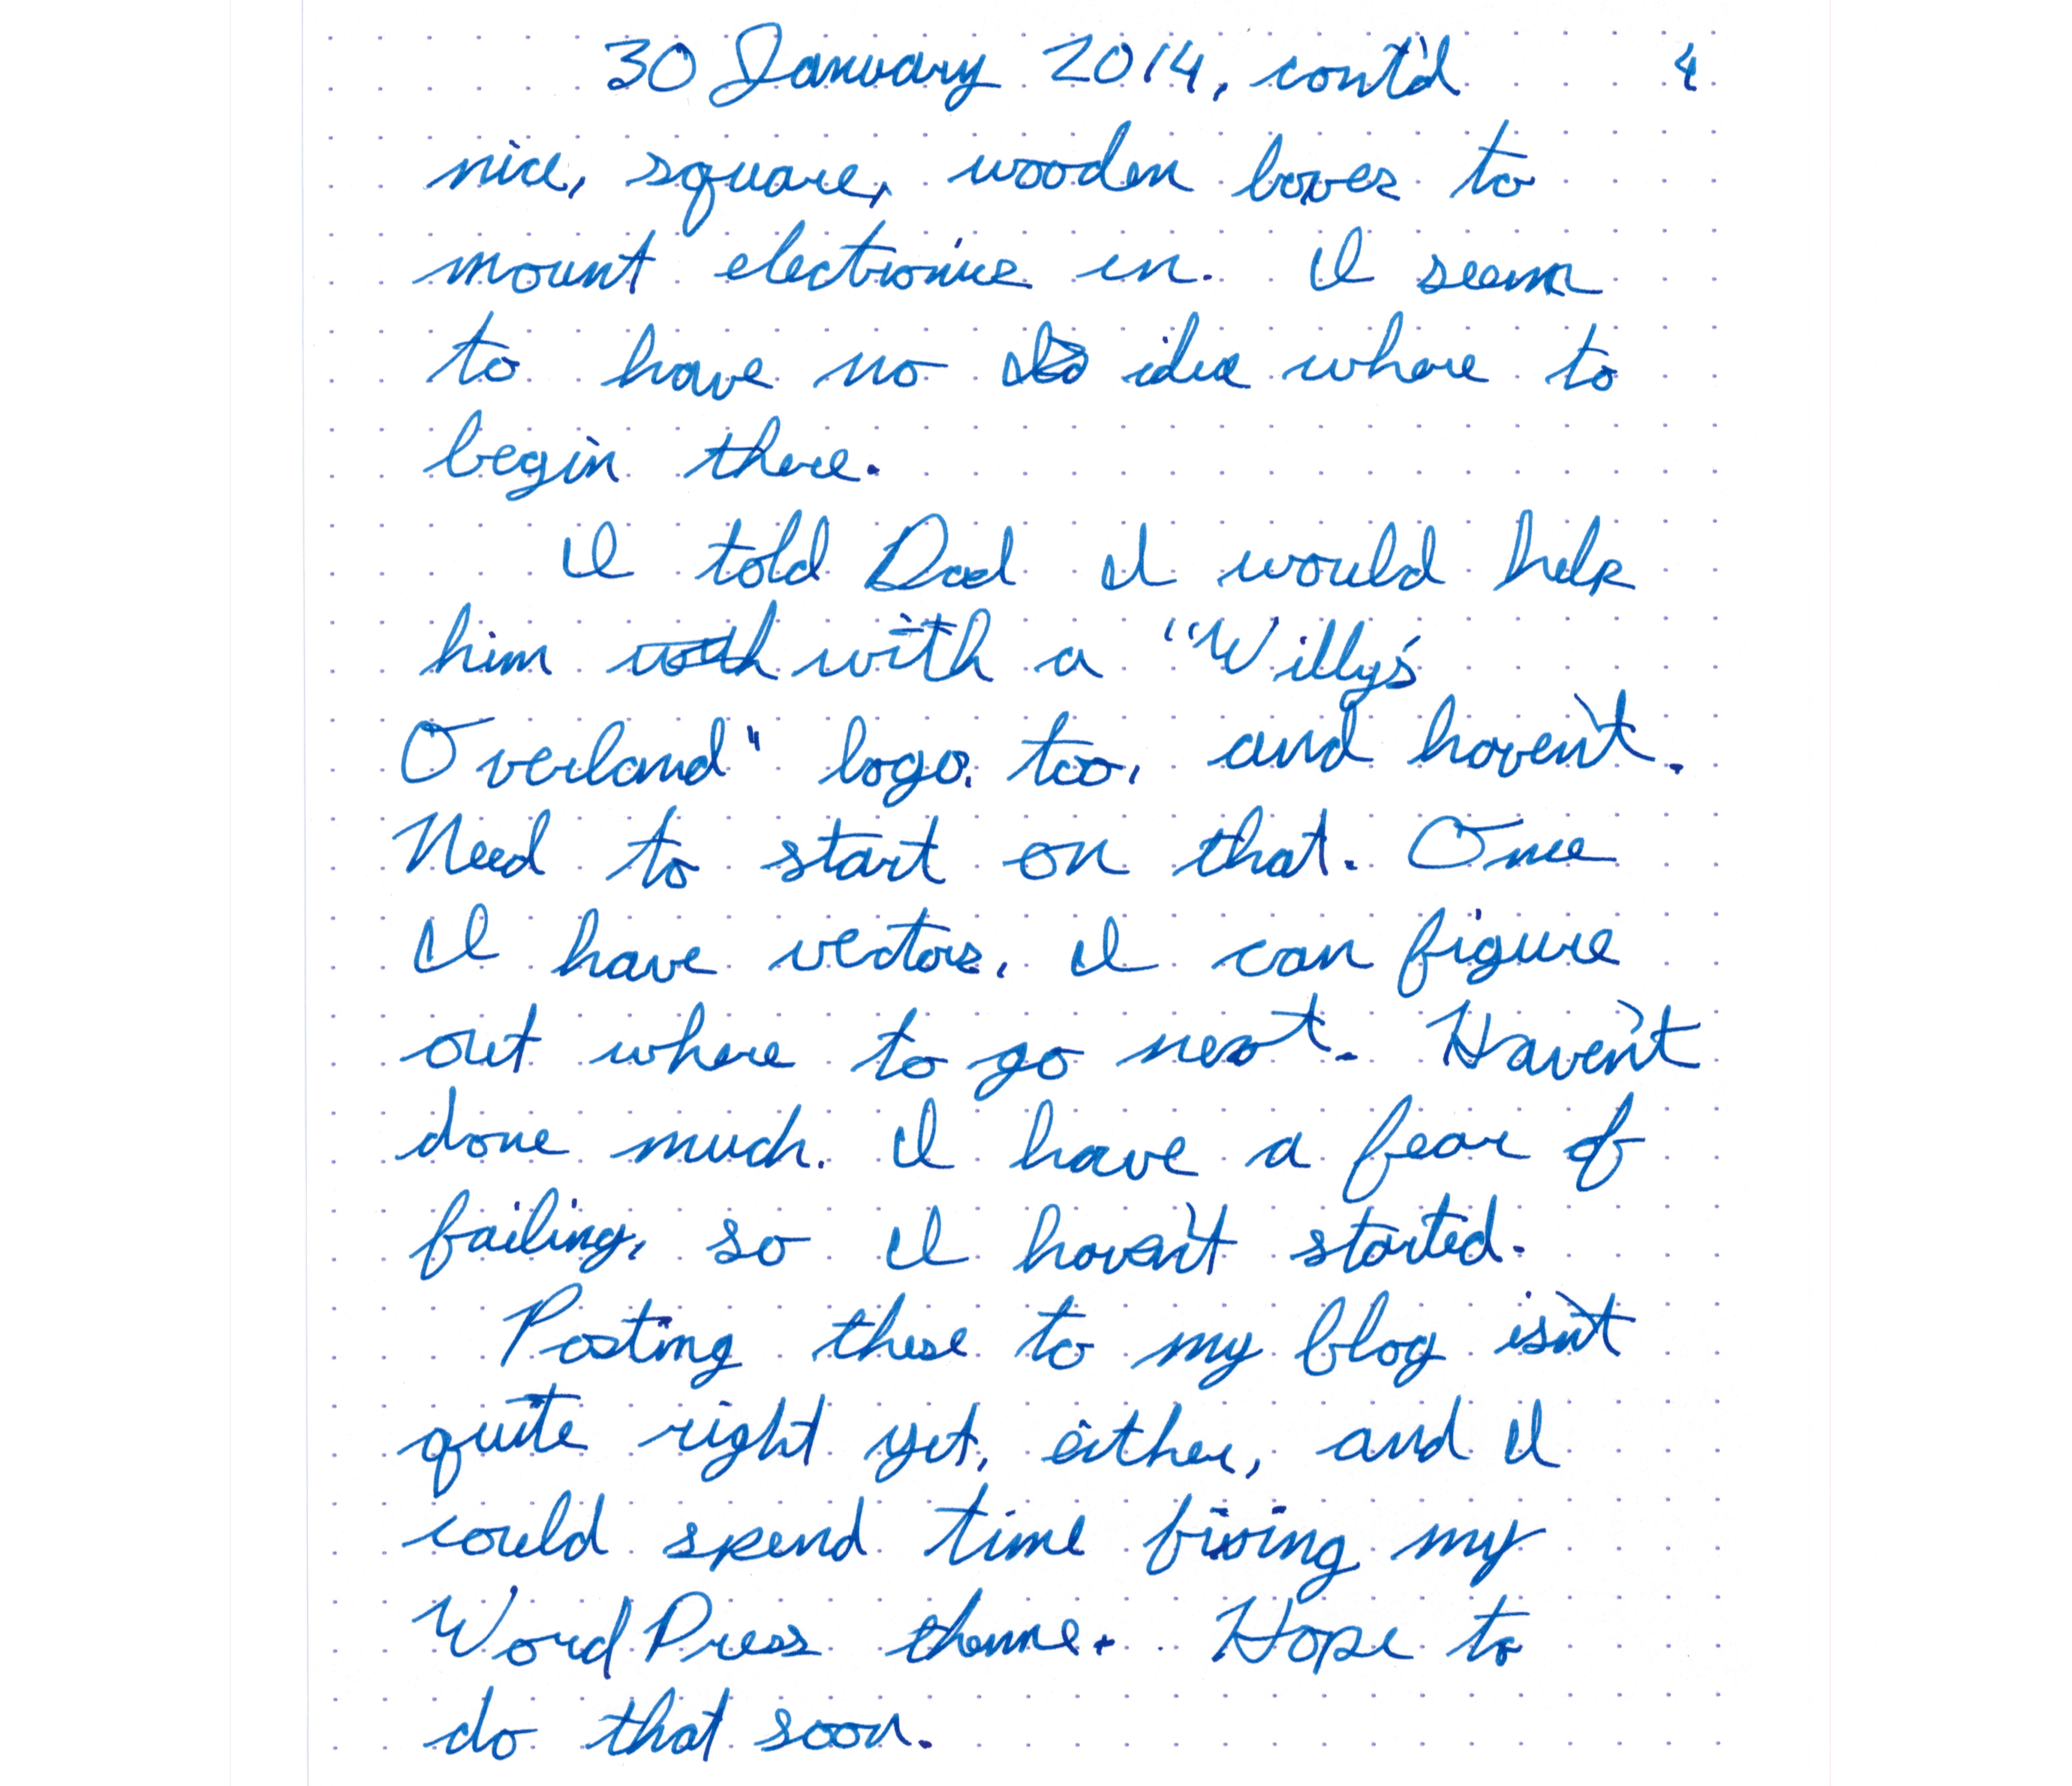 30 January 2014, cont'd 4
nice, square, wooden boxes to
mount electronics in. I seem
to have no idea where to
begin there.
I told Dad I would help
him with a "Willy's
Overland" logo, too, and haven't.
Need to start on that. Once
I have vectors, I can figure
out where to go next. Haven't
done much. I have a fear of
failing, so I haven't started.
Posting these to my blog isn't
quite right yet, either, and I
could spend time fixing my
WordPress theme. Hope to
do that soon.